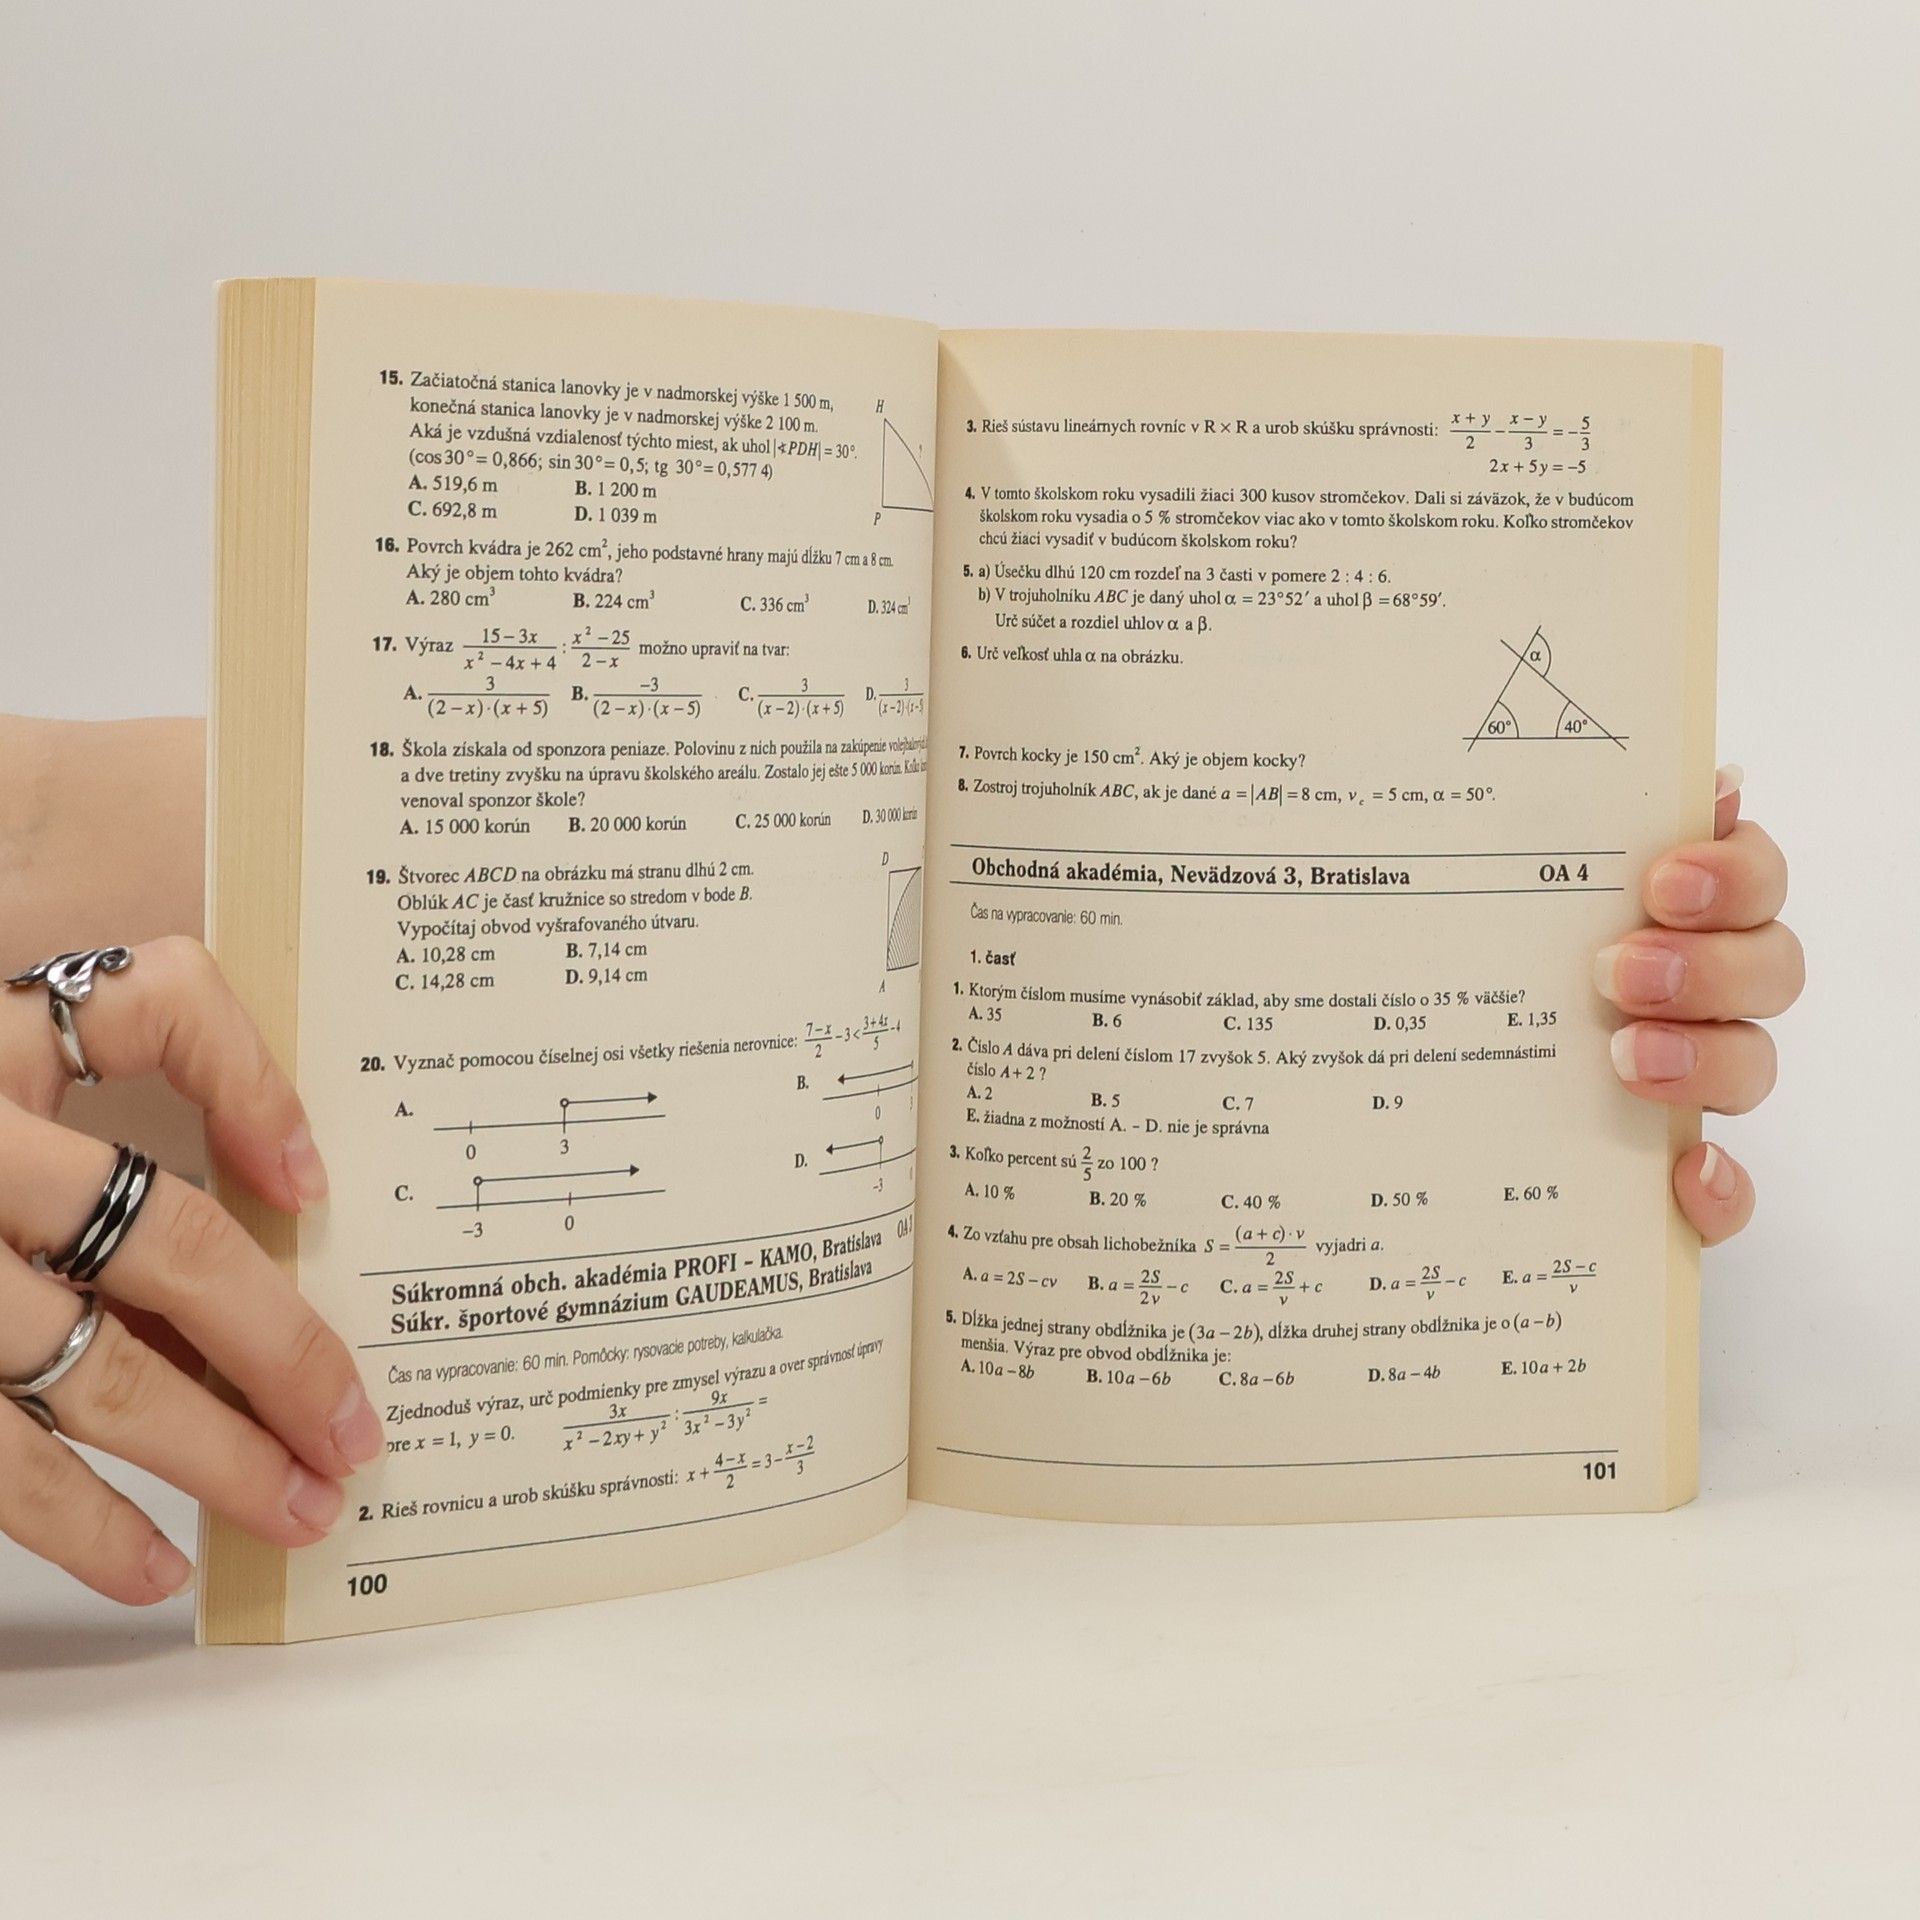 15. Začiatočná stanica lanovky je v nadmorskej výške 1 500 m,
konečná stanica lanovky je v nadmorskej výške 2 100 m.
Aká je vzdušná vzdialenosť týchto miest, ak uhol |∢PDH| = 30°.
(cos 30° = 0,866; sin 30° = 0,5; tg 30° = 0,577 4)
A. 519,6 m B. 1 200 m
C. 692,8 m D. 1 039 m
H
P
16. Povrch kvádra je 262 cm², jeho podstavné hrany majú dĺžku 7 cm a 8 cm.
Aký je objem tohto kvádra?
A. 280 cm³ B. 224 cm³ C. 336 cm³ D. 324 cm³
17. Výraz (15 – 3x)/(x² – 4x + 4) : (x² – 25)/(2 – x) možno upraviť na tvar:
A. 3/((2 – x)·(x + 5)) B. –3/((2 – x)·(x – 5)) C. 3/((x – 2)·(x + 5)) D. 3/((x – 2)·(x – 5
18. Škola získala od sponzora peniaze. Polovinu z nich použila na zakúpenie
a dve tretiny zvyšku na úpravu školského areálu. Zostalo jej ešte 5 000 korún.
venoval sponzor škole?
A. 15 000 korún B. 20 000 korún C. 25 000 korún D. 30 000 korún
19. Štvorec ABCD na obrázku má stranu dlhú 2 cm.
Oblúk AC je časť kružnice so stredom v bode B.
Vypočítaj obvod vyšrafovaného útvaru.
A. 10,28 cm B. 7,14 cm
C. 14,28 cm D. 9,14 cm
D
A
20. Vyznač pomocou číselnej osi všetky riešenia nerovnice: (7 – x)/2 – 3 < (3 + 4x)/5 – 4
A. 0 3
B. 0 3
C. –3 0
D. –3
Súkromná obch. akadémia PROFI – KAMO, Bratislava OA 3
Súkr. športové gymnázium GAUDEAMUS, Bratislava
Čas na vypracovanie: 60 min. Pomôcky: rysovacie potreby, kalkulačka.
Zjednoduš výraz, urč podmienky pre zmysel výrazu a over správnosť úpravy
pre x = 1, y = 0. 3x/(x² – 2xy + y²) : 9x/(3x² – 3y²) =
2. Rieš rovnicu a urob skúšku správnosti: x + (4 – x)/2 = 3 – (x – 2)/3
100
3. Rieš sústavu lineárnych rovníc v R × R a urob skúšku správnosti: (x + y)/2 – (x – y)/3 = –5/3
2x + 5y = –5
4. V tomto školskom roku vysadili žiaci 300 kusov stromčekov. Dali si záväzok, že v budúcom
školskom roku vysadia o 5 % stromčekov viac ako v tomto školskom roku. Koľko stromčekov
chcú žiaci vysadiť v budúcom školskom roku?
5. a) Úsečku dlhú 120 cm rozdeľ na 3 časti v pomere 2 : 4 : 6.
b) V trojuholníku ABC je daný uhol α = 23°52′ a uhol β = 68°59′.
Urč súčet a rozdiel uhlov α a β.
6. Urč veľkosť uhla α na obrázku.
α
60° 40°
7. Povrch kocky je 150 cm². Aký je objem kocky?
8. Zostroj trojuholník ABC, ak je dané a = |AB| = 8 cm, v_c = 5 cm, α = 50°.
Obchodná akadémia, Nevädzová 3, Bratislava OA 4
Čas na vypracovanie: 60 min.
1. časť
1. Ktorým číslom musíme vynásobiť základ, aby sme dostali číslo o 35 % väčšie?
A. 35 B. 6 C. 135 D. 0,35 E. 1,35
2. Číslo A dáva pri delení číslom 17 zvyšok 5. Aký zvyšok dá pri delení sedemnástimi
číslo A + 2 ?
A. 2 B. 5 C. 7 D. 9
E. žiadna z možností A. – D. nie je správna
3. Koľko percent sú 2/5 zo 100 ?
A. 10 % B. 20 % C. 40 % D. 50 % E. 60 %
4. Zo vzťahu pre obsah lichobežníka S = ((a + c) · v)/2 vyjadri a.
A. a = 2S – cv B. a = 2S/2v – c C. a = 2S/v + c D. a = 2S/v – c E. a = (2S – c)/v
5. Dĺžka jednej strany obdĺžnika je (3a – 2b), dĺžka druhej strany obdĺžnika je o (a – b)
menšia. Výraz pre obvod obdĺžnika je:
A. 10a – 8b B. 10a – 6b C. 8a – 6b D. 8a – 4b E. 10a + 2b
101